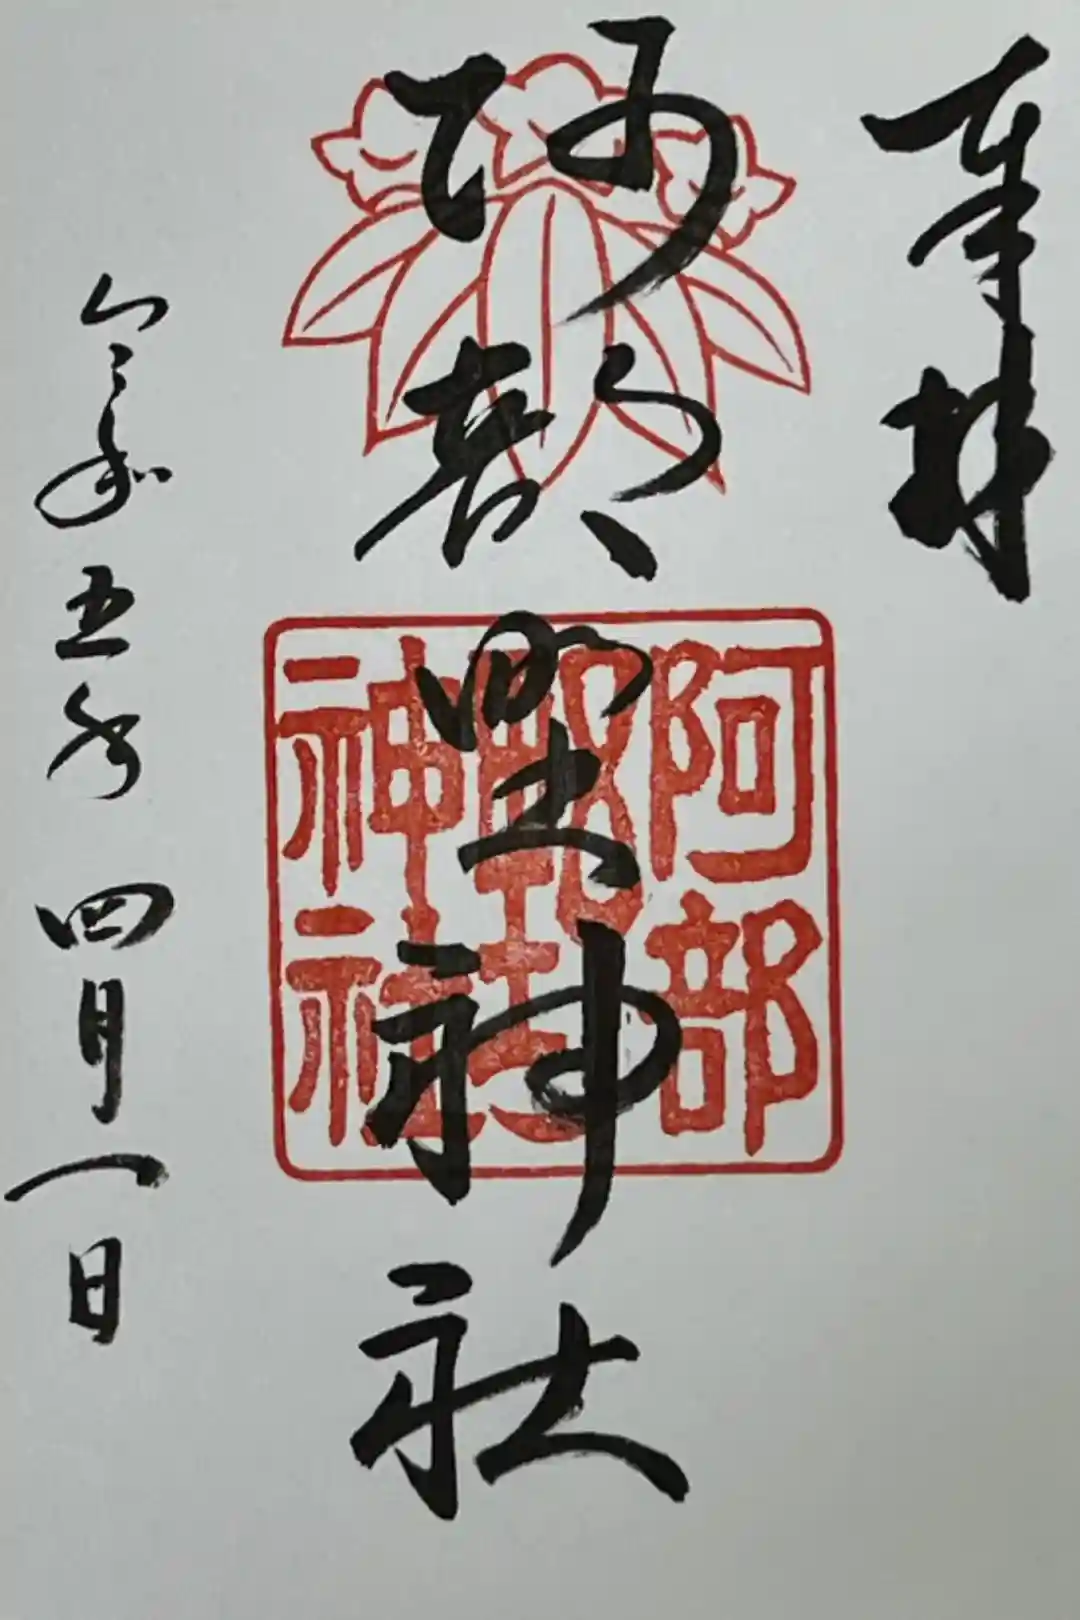 奉拝
阿部野神社
令和五年四月一日
阿部
野
神社